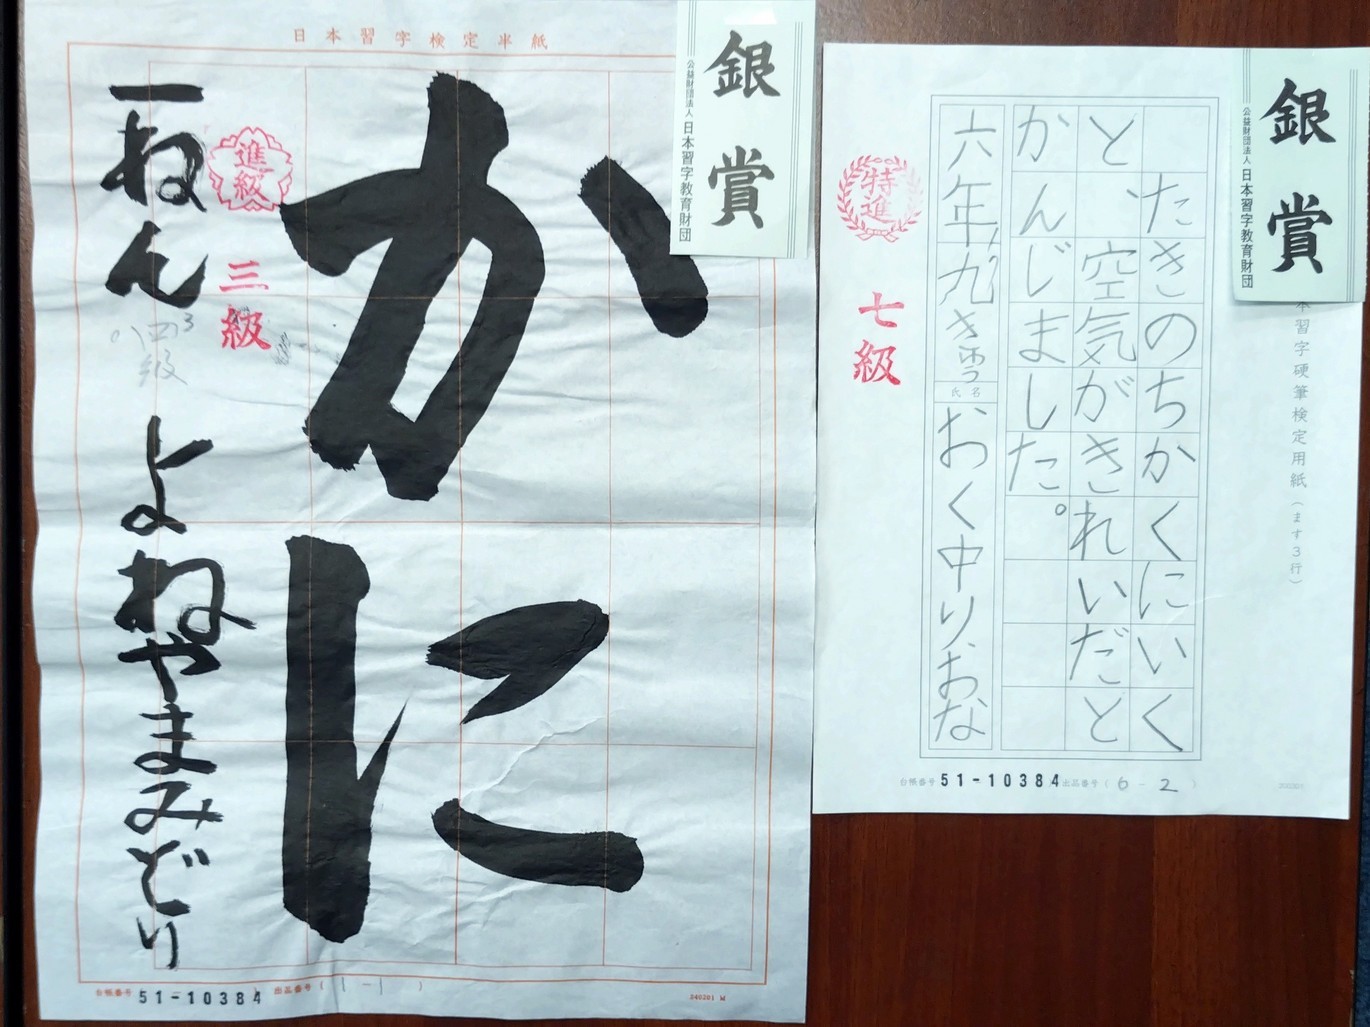 日本習字検定半紙
銀賞
公益財団法人 日本習字教育財団
かに
進級
三級
一ねん よねやまみどり
四級
台帳番号 51-10384 出品番号(1-1)
240201 M
銀賞
公益財団法人 日本習字教育財団
本習字硬筆検定用紙(ます3行)
たきのちかくにいく
と、空気がきれいだと
かんじました。
六年
氏名
おく中りおな
特進
七級
台帳番号 51-10384 出品番号(6-2)